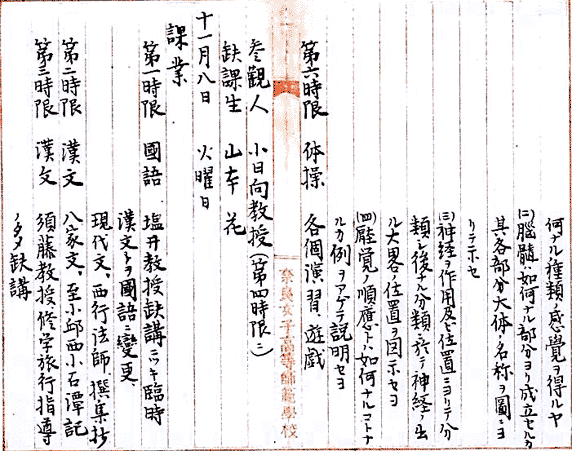 何ナル種類ノ感覚ヲ得ルヤ
(二)脳髄ハ如何ナル部分ヨリ成立セルカ
其各部分大体ノ名称ヲ圖ニヨ
リテ示セ
(三)神経ノ作用及ビ位置ニヨリテ分
類シ後ナル分類ニ於テ神経ノ出
ル大畧ノ位置ヲ図示セヨ
(四)壓覚ノ順應トハ如何ナルコトナ
ルカ例ヲアゲテ説明セヨ
第六時限 体操 各個演習 遊戯
奈良女子高等師範學校
参觀人 小日向教授(第四時限ニ)
缺課生 山本 花
十一月八日 火曜日
課業
第一時限 國語 塩井教授缺講ニツキ臨時
漢文トヲ國語ニ變更
現代文、西行法師、撰集抄
第二時限 漢文 八家文、至小邱西小石潭記
第三時限 漢文 須藤教授修学旅行指導
ノタメ缺講